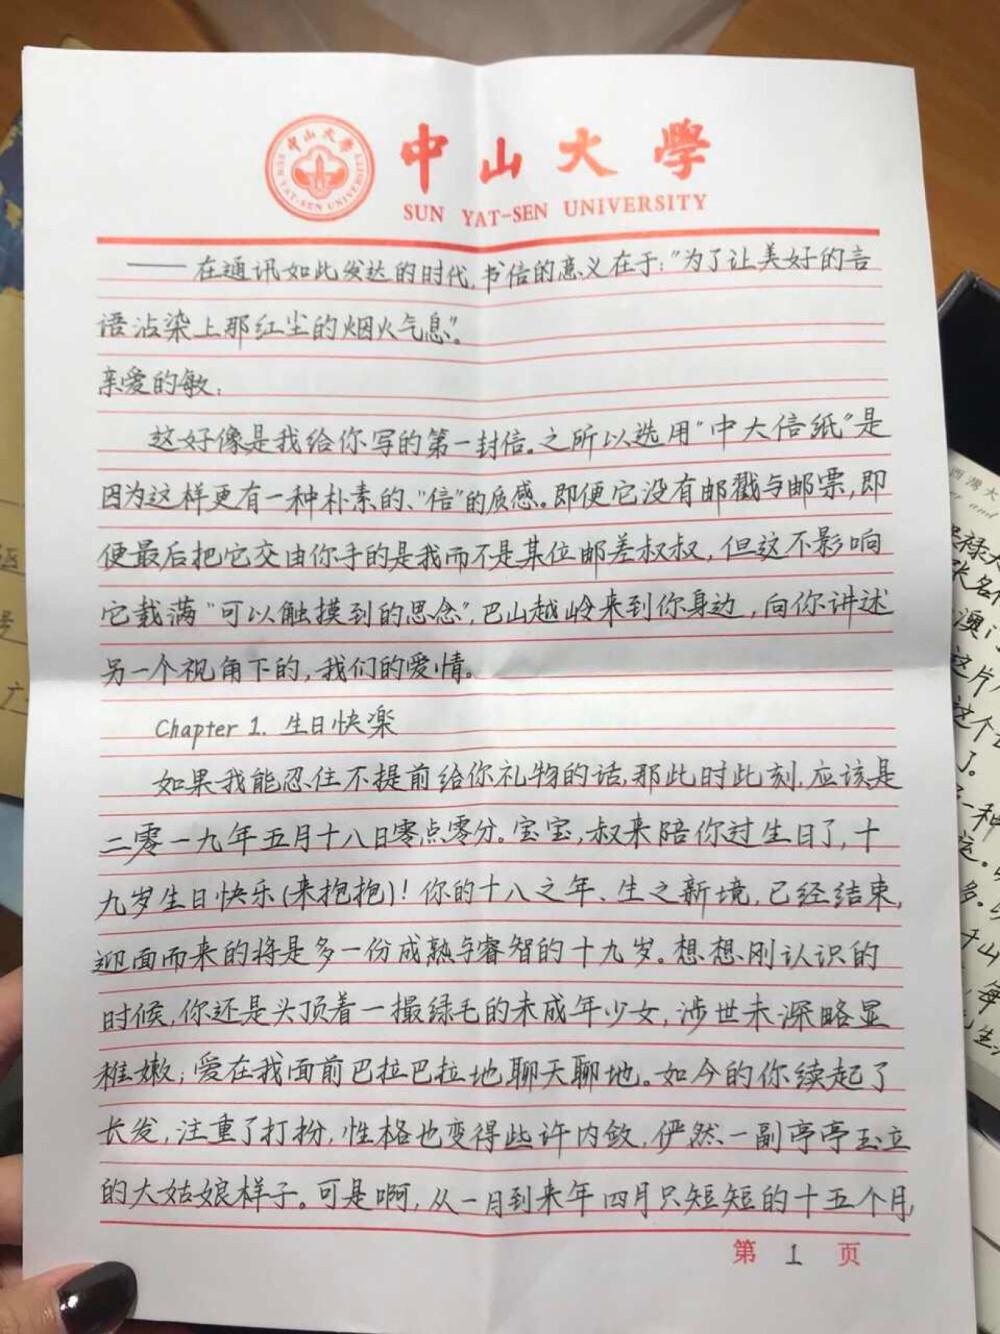 中山大學
SUN YAT-SEN UNIVERSITY
中山大學
SUN YAT-SEN UNIVERSITY
——在通讯如此发达的时代,书信的意义在于:"为了让美好的言
语沾染上那红尘的烟火气息"。
亲爱的敏:
这好像是我给你写的第一封信。之所以选用"中大信纸"是
因为这样更有一种朴素的、"信"的质感。即便它没有邮戳与邮票,即
便最后把它交由你手的是我而不是某位邮差叔叔,但这不影响
它载满"可以触摸到的思念",巴山越岭来到你身边,向你讲述
另一个视角下的,我们的爱情。
Chapter 1. 生日快楽
如果我能忍住不提前给你礼物的话,那此时此刻,应该是
二零一九年五月十八日零点零分。宝宝,叔来陪你过生日了,十
九岁生日快乐(来抱抱)!你的十八之年、生之新境,已经结束,
迎面而来的将是多一份成熟与睿智的十九岁。想想刚认识的
时候,你还是头顶着一撮绿毛的未成年少女,涉世未深略显
稚嫩;爱在我面前巴拉巴拉地聊天聊地。如今的你续起了
长发,注重了打扮,性格也变得些许内敛,俨然一副亭亭玉立
的大姑娘样子。可是啊,从一月到来年四月只短短的十五个月,
第 1 页